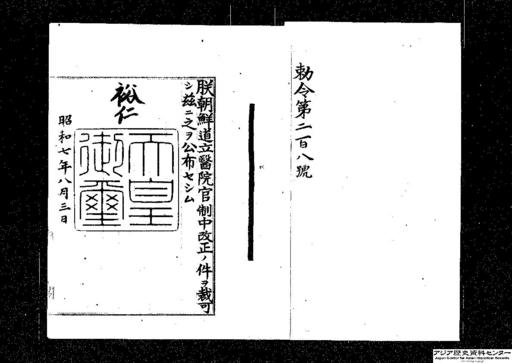 勅令第二百八號
朕朝鮮道立醫院官制中改正ノ件ヲ裁可
シ茲ニ之ヲ公布セシム
裕仁
天皇
御璽
昭和七年八月三日
アジア歴史資料センター
Japan Center for Asian Historical Records